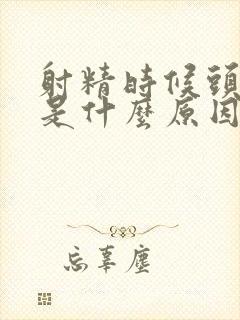 射精時候頭
是什麼原因
忘辜塵